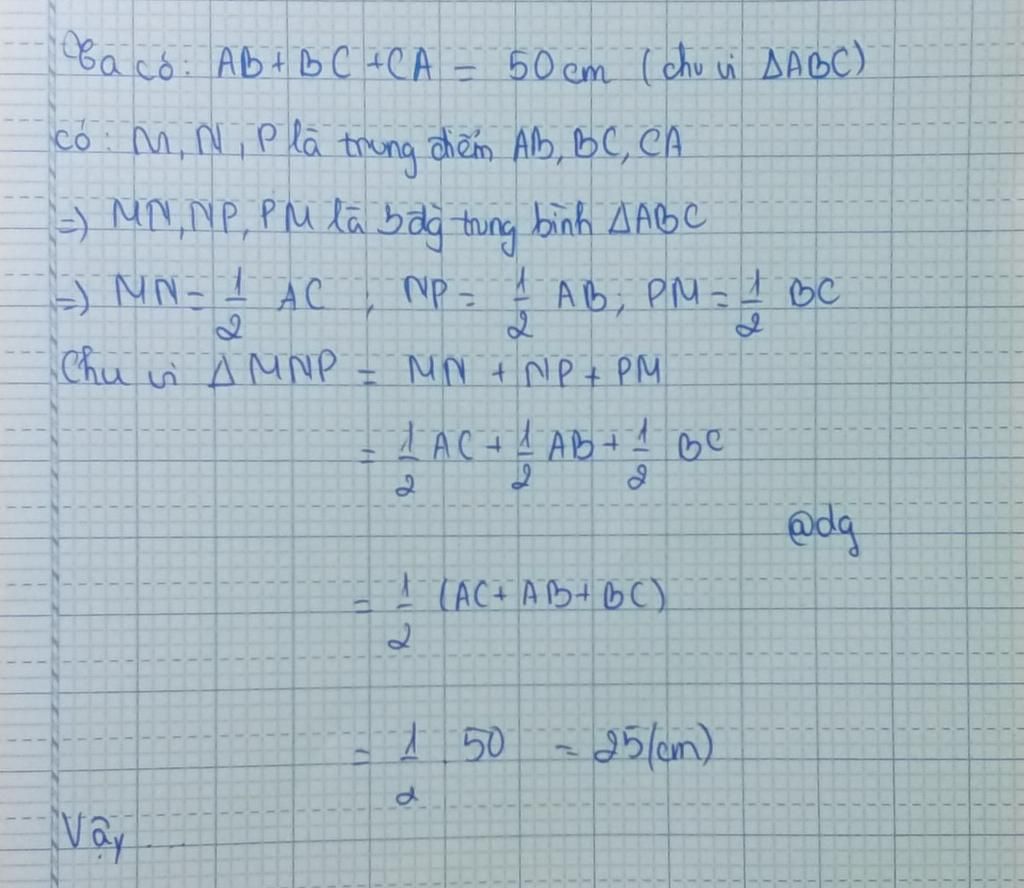 Ta có: AB + BC + CA = 50 cm (chu vi ΔABC)
có: M, N, P là trung điểm AB, BC, CA
=) MN, NP, PM là 3 đg trung bình ΔABC
=) MN = 1/2 AC, NP = 1/2 AB; PM = 1/2 BC
Chu vi ΔMNP = MN + NP + PM
= 1/2 AC + 1/2 AB + 1/2 BC
@dg
= 1/2 (AC + AB + BC)
= 1/2 . 50 = 25 (cm)
Vậy ....